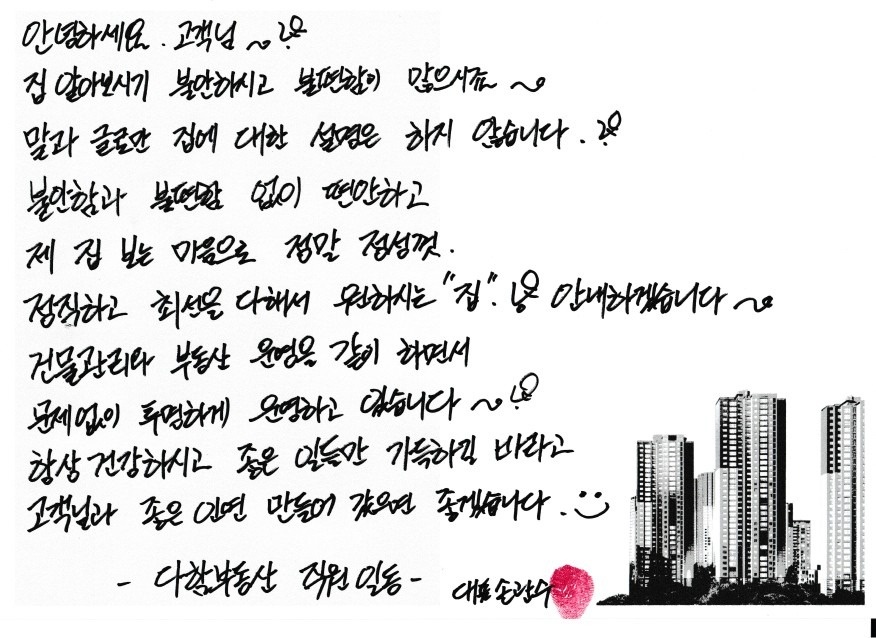 안녕하세요. 고객님 ~
집 알아보시기 불안하시고 불편함이 많으시죠 ~
말과 글로만 집에 대한 설명은 하지 않습니다.
불안함과 불편함 없이 편안하고
제 집 보는 마음으로 정말 정성껏.
정직하고 최선을 다해서 원하시는 "집". 안내하겠습니다 ~
건물관리와 부동산 운영을 같이 하면서
문제없이 투명하게 운영하고 있습니다 ~
항상 건강하시고 좋은 일들만 가득하길 바라고
고객님과 좋은 인연 만들어 갔으면 좋겠습니다.
- 다함부동산 직원 일동 -
대표 손관수